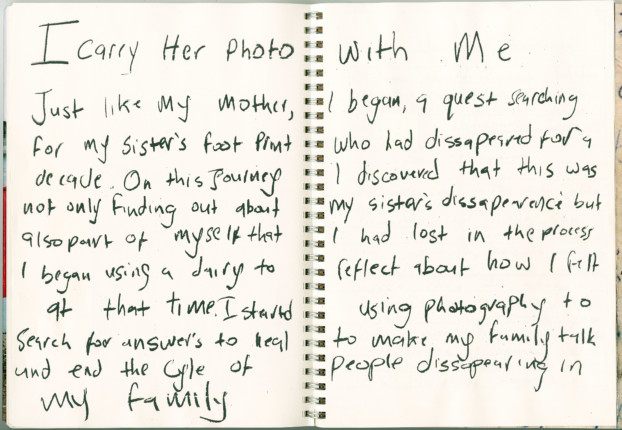 I carry Her photo with Me
Just like My mother, I began, a quest searching
for my sister's foot print who had dissapeared for a
decade. On this Journey I discovered that this was
not only finding out about my sister's dissaperence but
also part of myself that I had lost in the process
I began using a dairy to reflect about how I felt
at that time. I started using photography to
search for answer's to heal to make my family talk
and end the cycle of people dissapearing in
my family